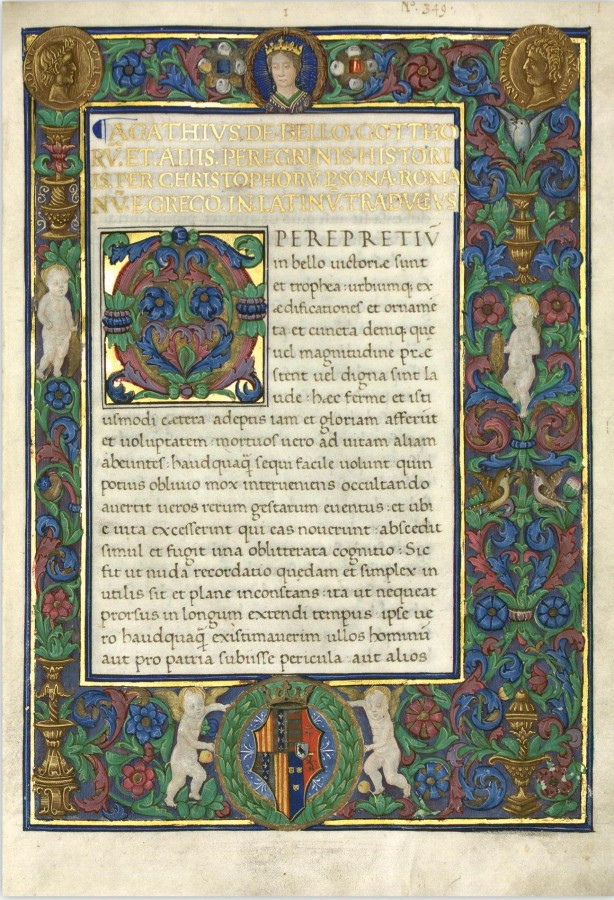 Nº. 349.
AGATHIVS. DE. BELLO. GOTTHO
RV̄. ET. ALIIS. PEREGRINIS. HISTORI
IS. PER. CHRISTOPHORV̄. PSONA. ROMA
NV̄. E. GRECO. IN. LATINV̄.
OPEREPRETIV̄
in bello uictoriæ sunt
et trophea : urbiumq; ex
ædificationes et orname
ta et cuncta demq; que
uel magnitudine præ
stent uel digna sint la
ude : hæc ferme et isti
usmodi cætera adeptis iam et gloriam afferūt
et uoluptatem : mortuos uero ad uitam aliam
abeuntes : haudquaq̄ sequi facile uolunt quin
potius obliuio mox interueniens occultando
auertit ueros rerum gestarum euentus : et ubi
e uita excesserint qui eas nouerunt : abscedit
simul et fugit una oblitterata cognitio : Sic
fit ut nuda recordatio quędam et simplex in
utilis sit et plane inconstans : ita ut nequeat
prorsus in longum extendi tempus : ipse ue
ro haudquaq̄ existimauerim ullos hominū
aut pro patria subisse pericula : aut alios